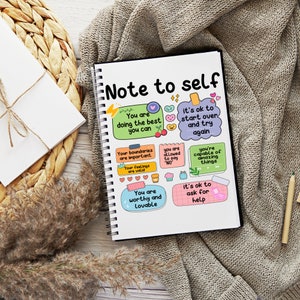 Note to self
You are
doing the best
you can
it's ok to
start over
and try
again
Your boundaries
are important
you are
allowed to
say
"NO"
you're
capable of
amazing
things
Your feelings
are valid
You are
worthy and
lovable
it's ok to
ask for
help